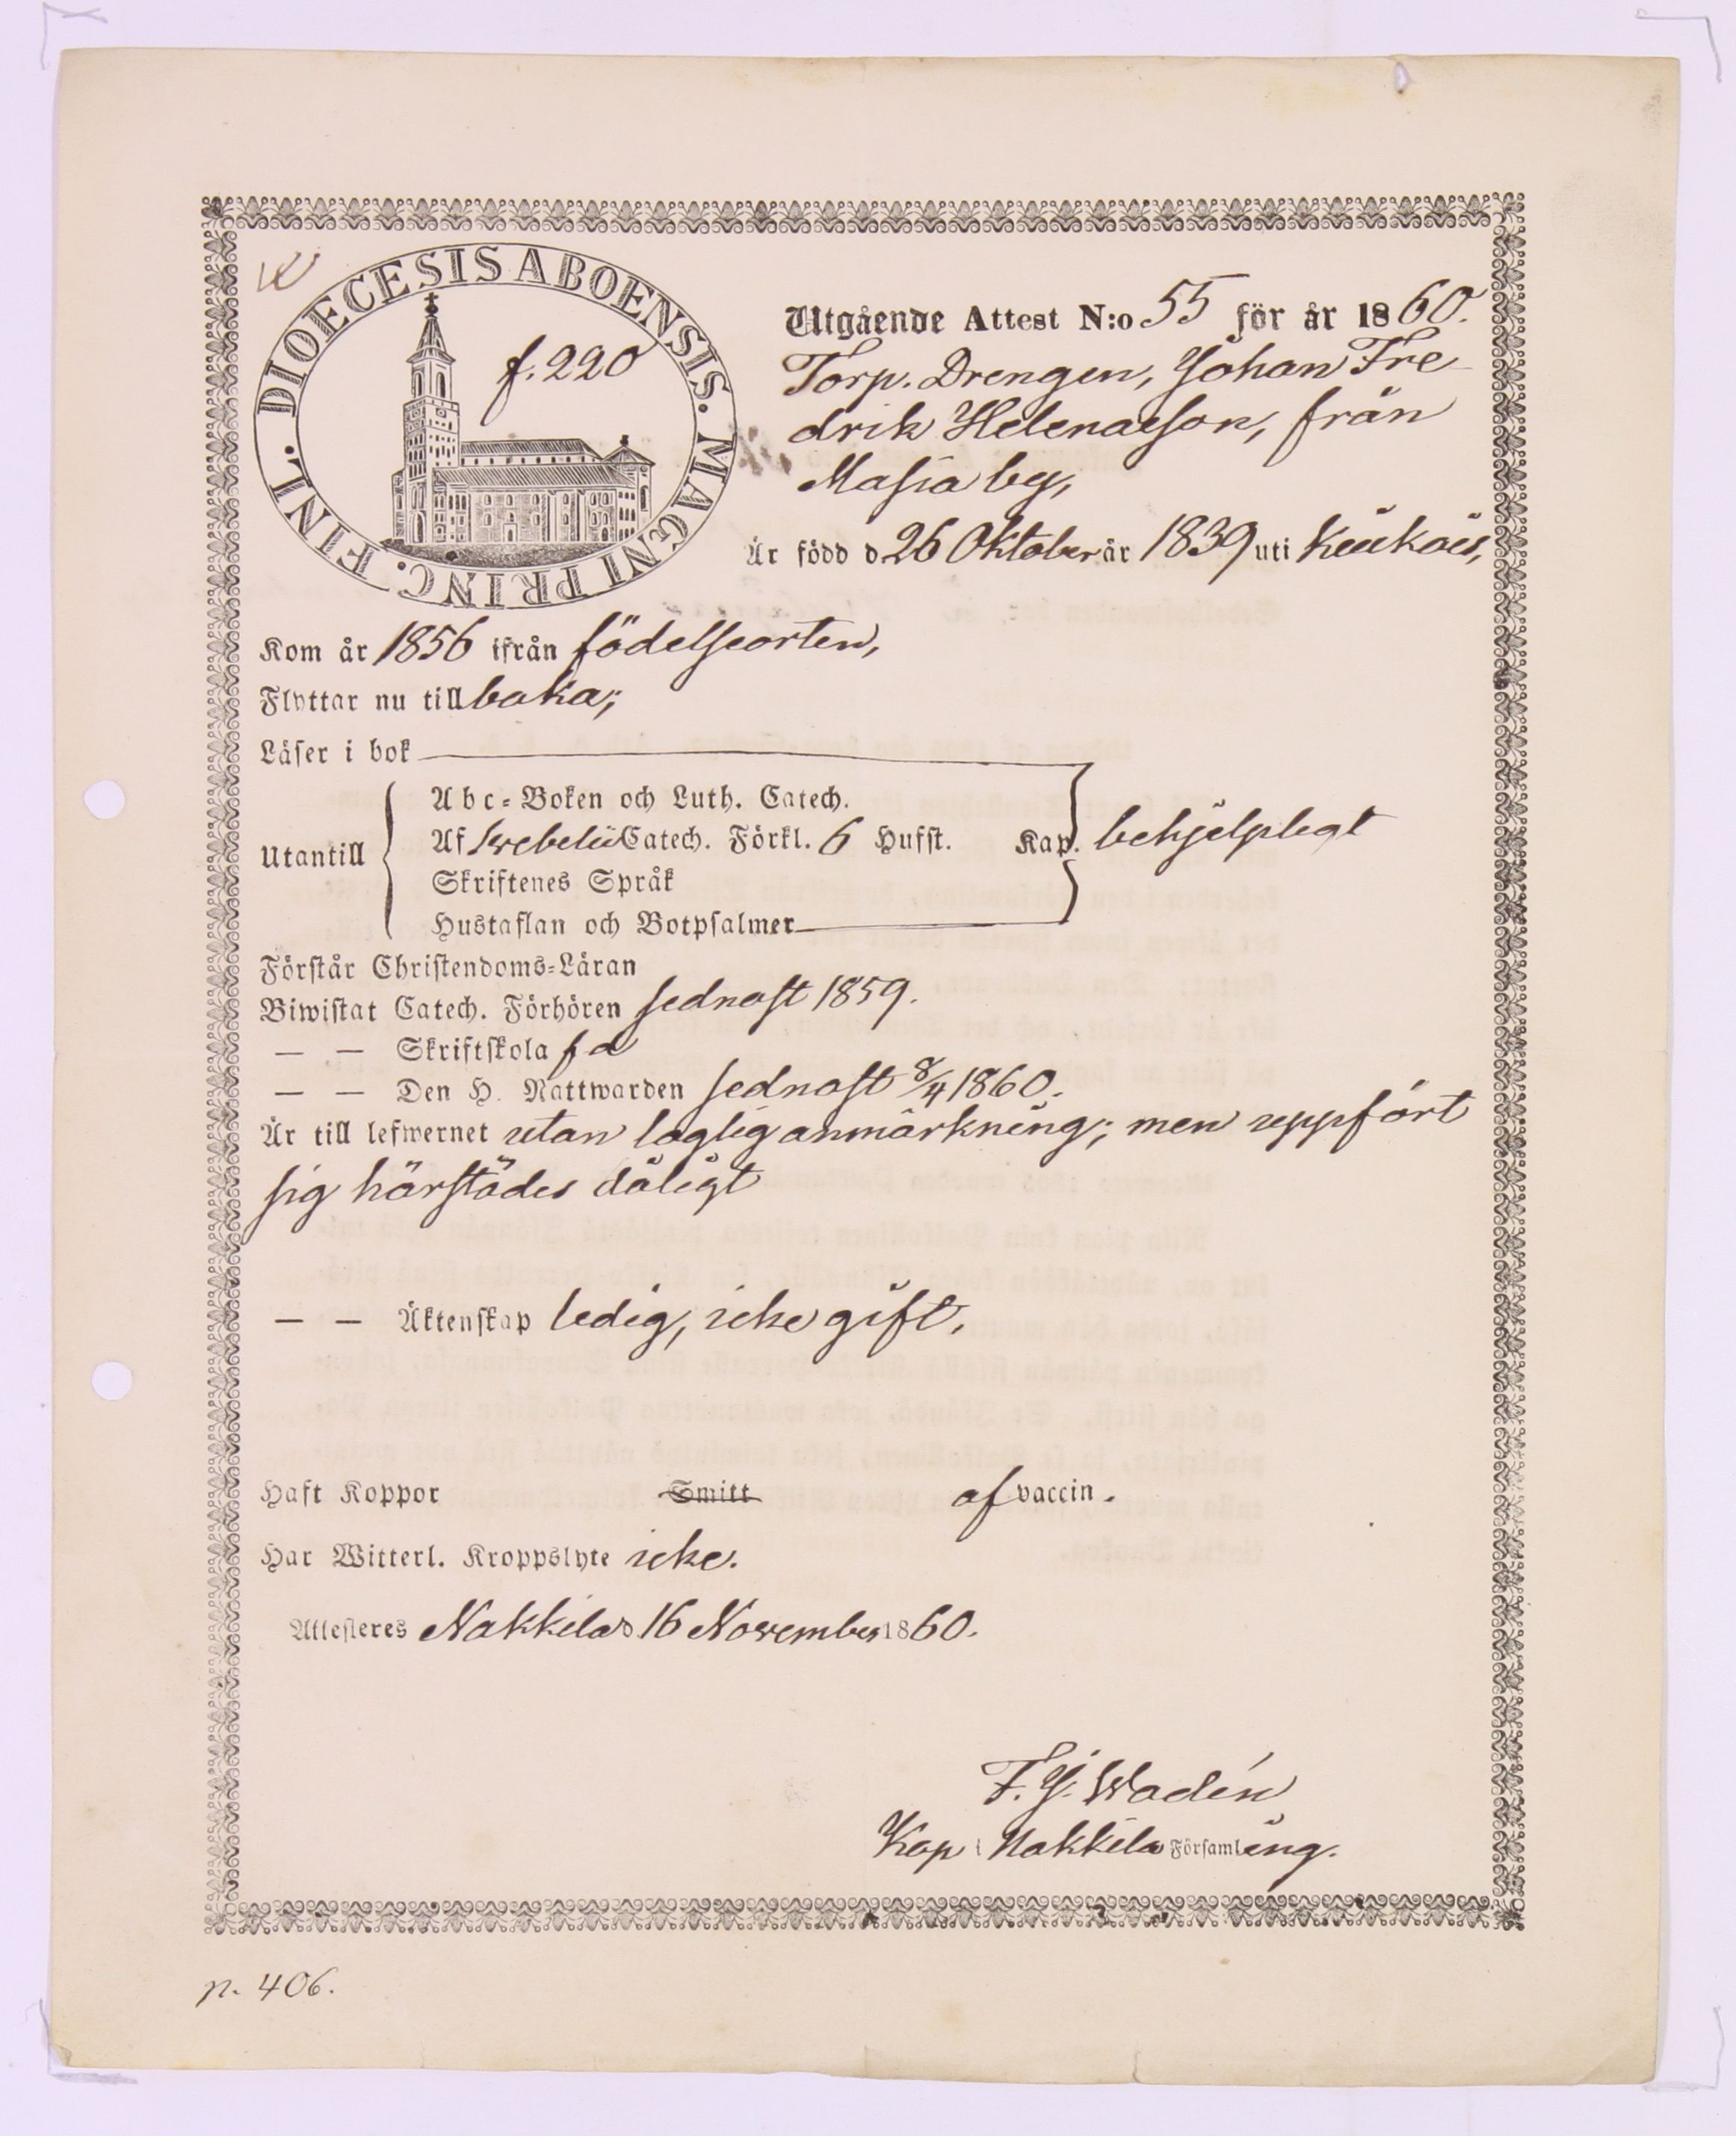 DIOECESIS ABOENSIS. MAGNI PRINC. FINL.
f. 220
Utgående Attest N:o 55 för år 1860.
Torp. Drengen, Johan Fre
drik Helenaeson, från
Masia by,
Är född d. 26 Oktober år 1839 uti Keikois,
Kom år 1856 ifrån födelseorten,
Flyttar nu tillbaka;
Läser i bok
Abc-Boken och Luth. Catech.
Utantill Af Svebelii Catech. Förkl. 6 Hufst. Kap. behjelpligt
Skriftenes Språk
Hustaflan och Botpsalmer
Förstår Christendoms-Läran
Biwistat Catech. Förhören sednast 1859.
— — Skriftskola ja
— — Den H. Nattwarden sednast 8/4 1860.
Är till lefwernet utan laglig anmärkning; men uppfört
sig härstädes dåligt
— — Äktenskap ledig, icke gift,
Haft Koppor Smitt af vaccin.
Har Witterl. Kroppslyte icke.
Attesteres Nakkila d. 16 November 1860.
F. J. Wadén
Kap i Nakkila Församling.
p. 406.